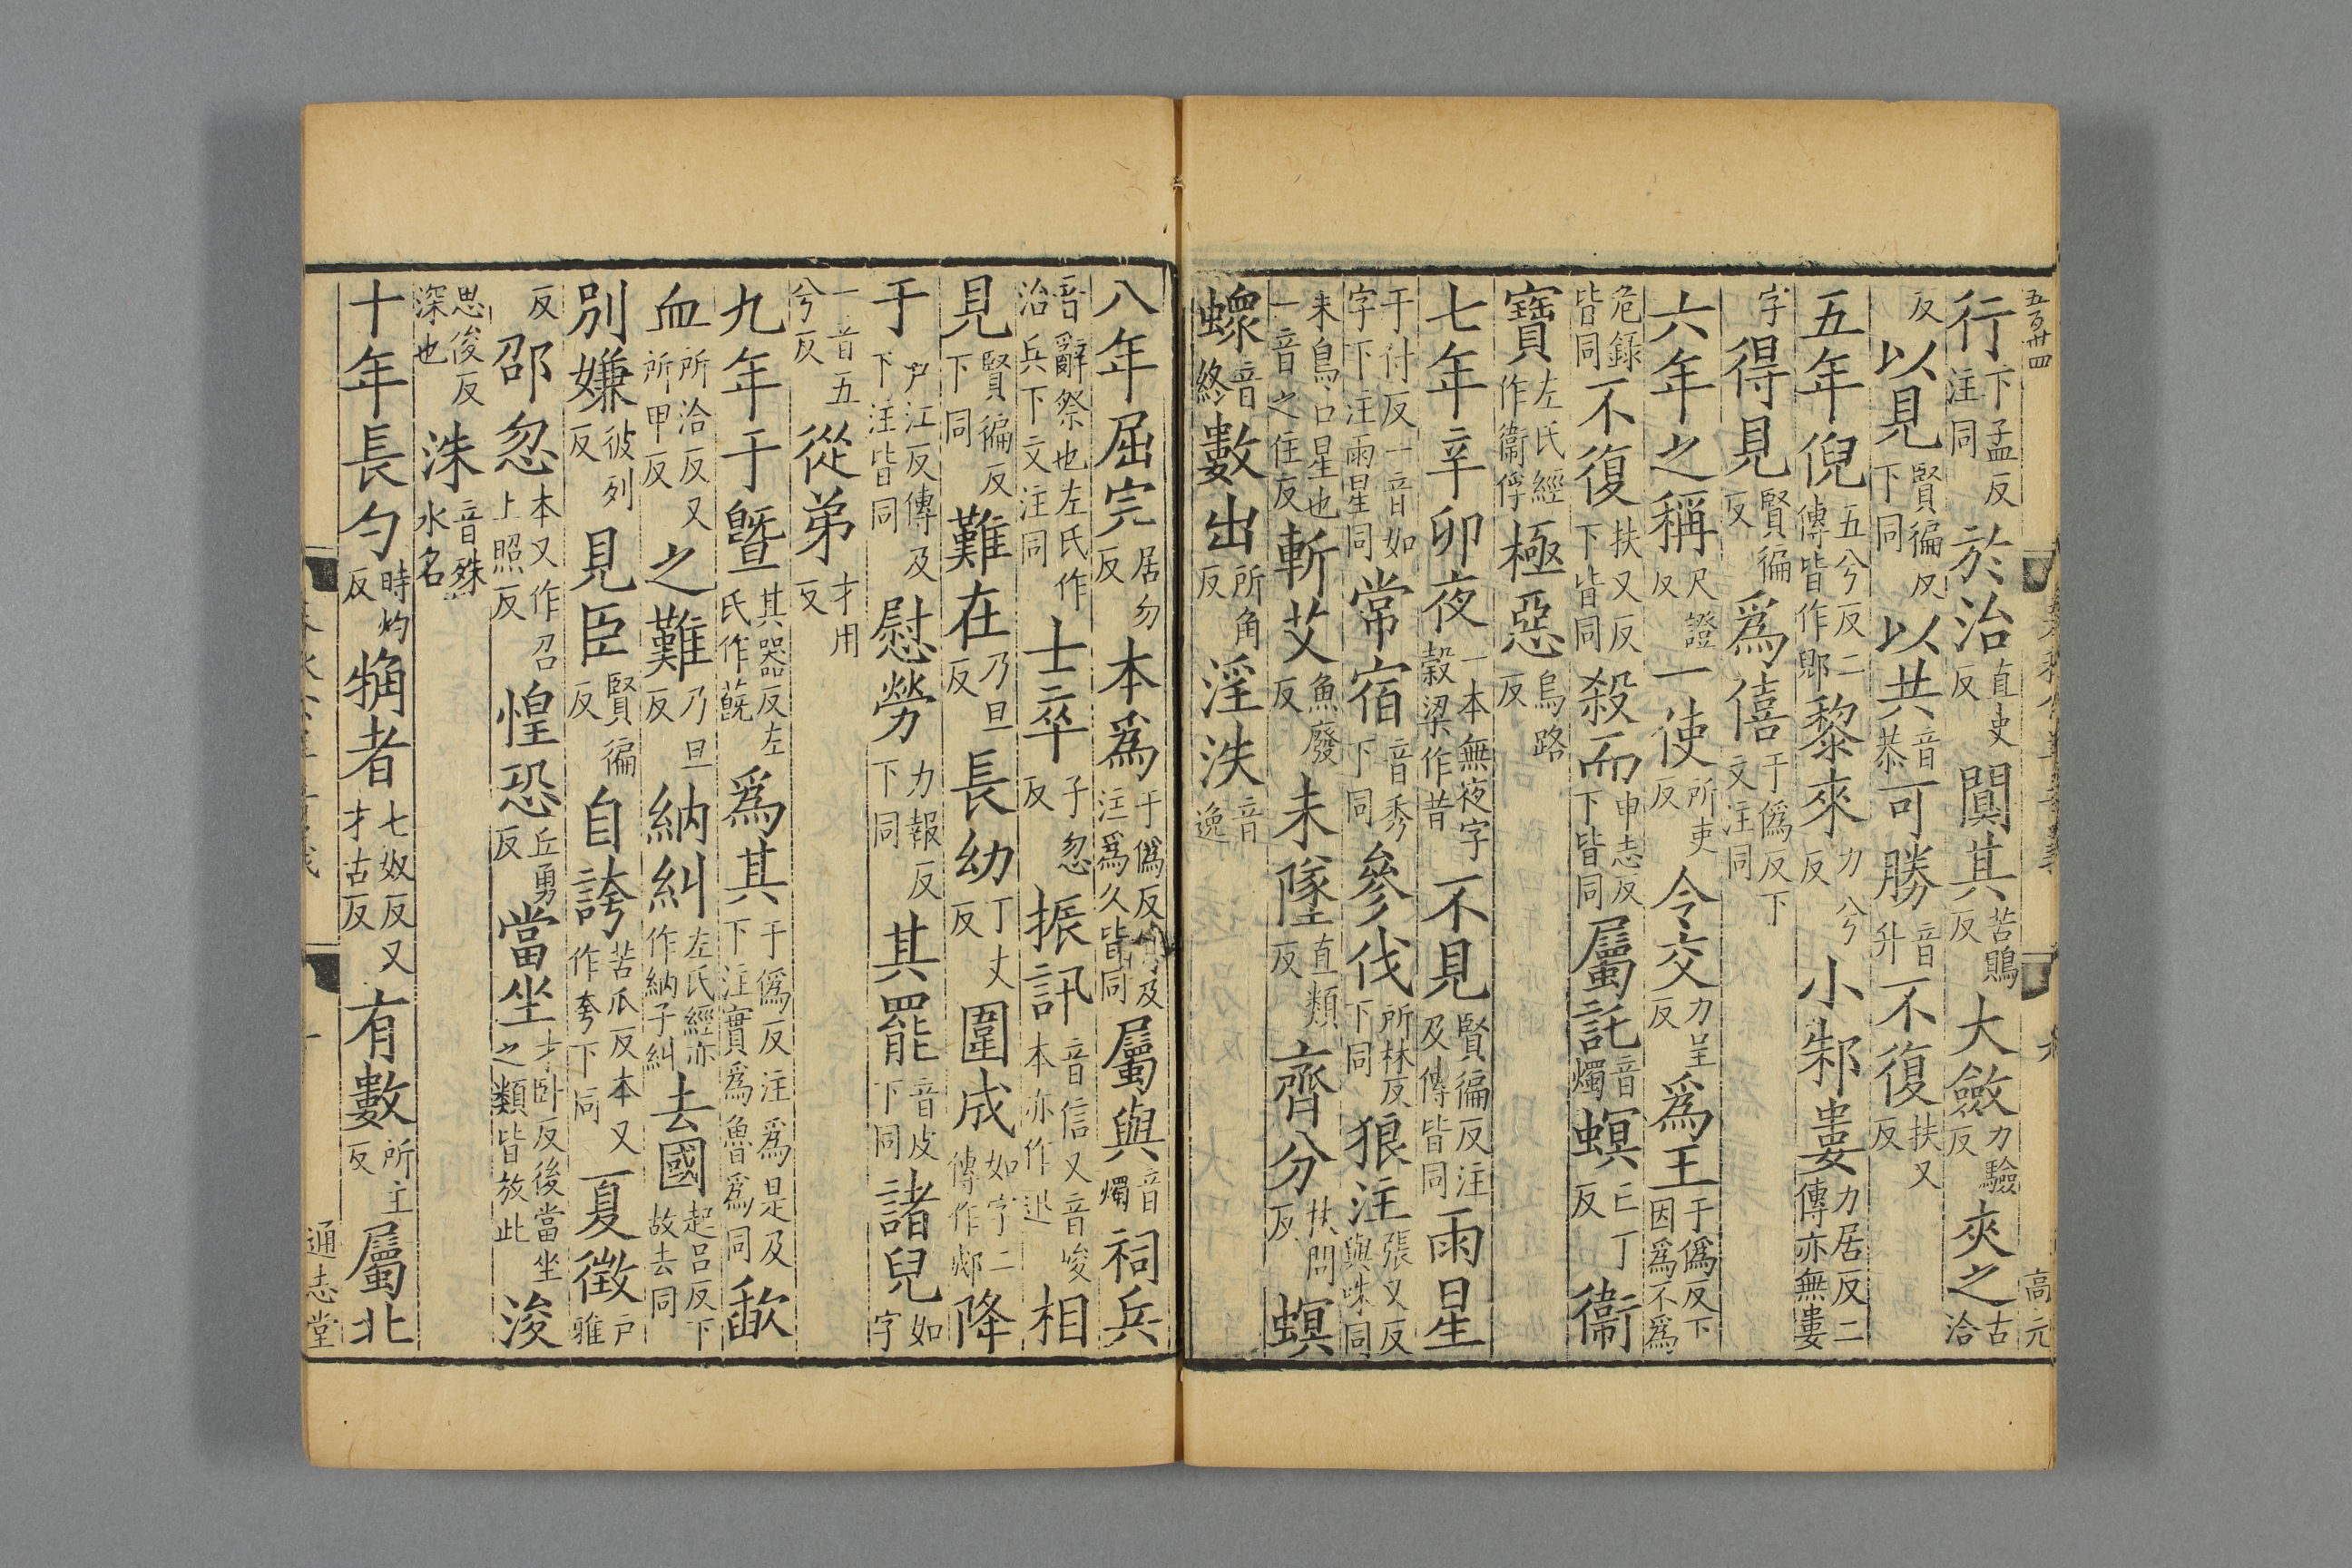 行下孟反注同於治直吏反闃其苦鵙反大斂力驗反夾之古洽
反以見賢徧反下同以共音恭可勝音升不復扶又反
五年倪五兮反二傳皆作郳黎來力兮反小邾婁力居反二傳亦無婁
字得見賢徧反爲僖于僞反下文注同
六年之稱尺證反一使所吏反令交力呈反爲王于僞反下因爲不爲
危錄皆同不復扶又反下皆同殺而申志反下皆同屬託音燭螟亡丁反衞
寶左氏經作衞俘極惡烏路反
七年辛卯夜一本無夜字穀梁作昔不見賢徧反注及傳皆同雨星
于付反一音如字下注雨星同常宿音秀下同參伐所林反下同狼注張又反與咮同
朱鳥口星也一音之住反斬艾魚廢反未墜直類反齊分扶問反螟
䗥音終數出所角反淫泆音逸
八年屈完居勿反本爲于僞反及注爲久皆同屬與音燭祠兵
音辭祭也左氏作治兵下文注同士卒子忽反振訊音信又音峻本亦作迅相
見賢徧反下同難在乃旦反長幼丁丈反圍成如字二傳作郕降
于戸江反傳及下注皆同慰勞力報反下同其罷音皮下同諸兒如字
一音五兮反從弟才用反
九年于曁其器反左氏作蔇爲其于僞反注爲是及下注實爲魯爲同歃
血所洽反又所甲反之難乃旦反納糾左氏經亦作納子糾去國起呂反下故去同
別嫌彼列反見臣賢徧反自誇苦瓜反本又作夸下同夏徵戸雅
反邵忽本又作召上照反惶恐丘勇反當坐才卧反後當坐之類皆放此浚
思俊反深也洙音殊水名
十年長勺時灼反觕者七奴反又才古反有數所主反屬北
通志堂